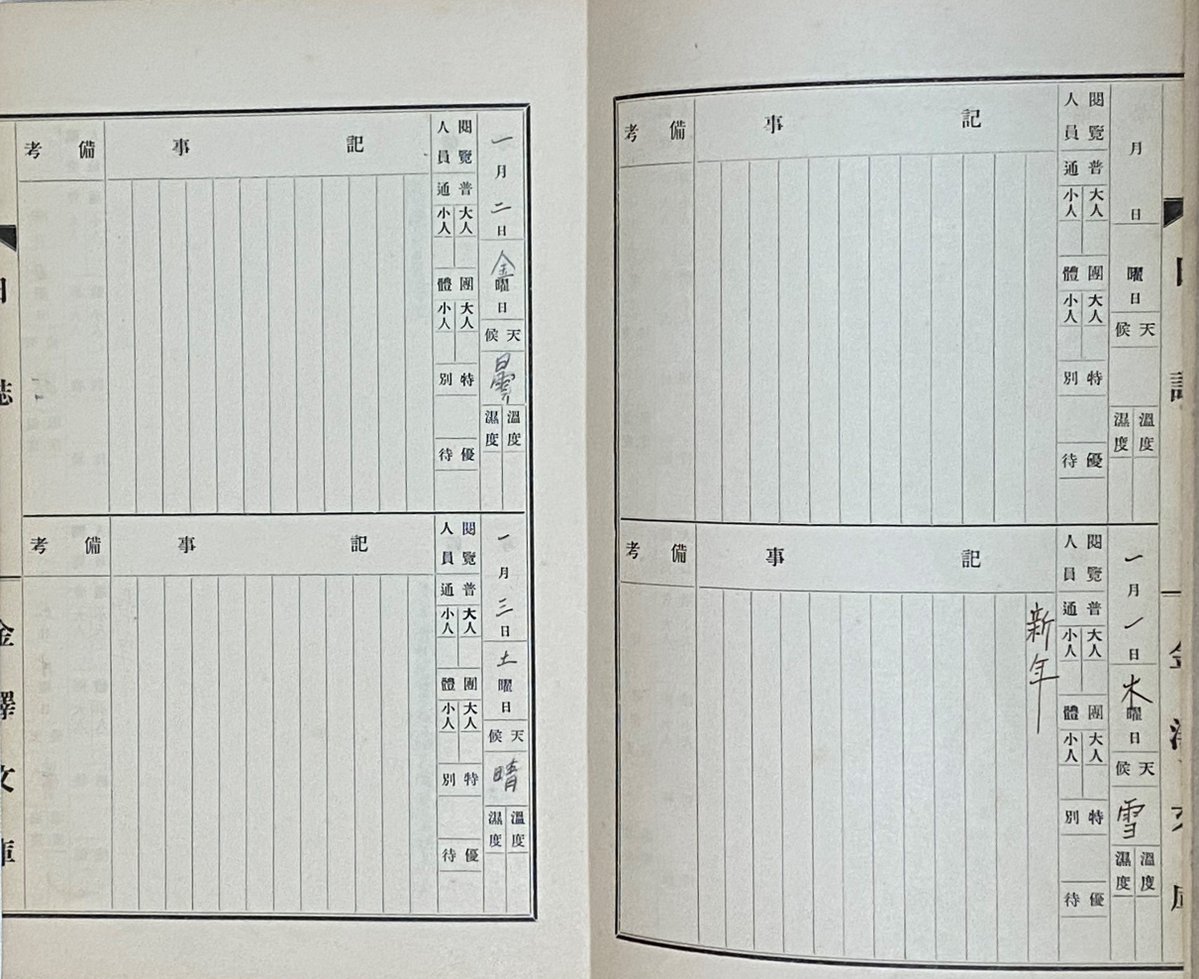 日誌
金澤文庫
月 日
曜日
天候
溫度
濕度
閲覽人員
普通
大人
小人
團體
大人
小人
特別
優待
記事
備考
一月一日
木曜日
天候
雪
溫度
濕度
閲覽人員
普通
大人
小人
團體
大人
小人
特別
優待
記事
新年
備考
一月二日
金曜日
天候
曇
溫度
濕度
閲覽人員
普通
大人
小人
團體
大人
小人
特別
優待
記事
備考
一月三日
土曜日
天候
晴
溫度
濕度
閲覽人員
普通
大人
小人
團體
大人
小人
特別
優待
記事
備考
日誌
金澤文庫